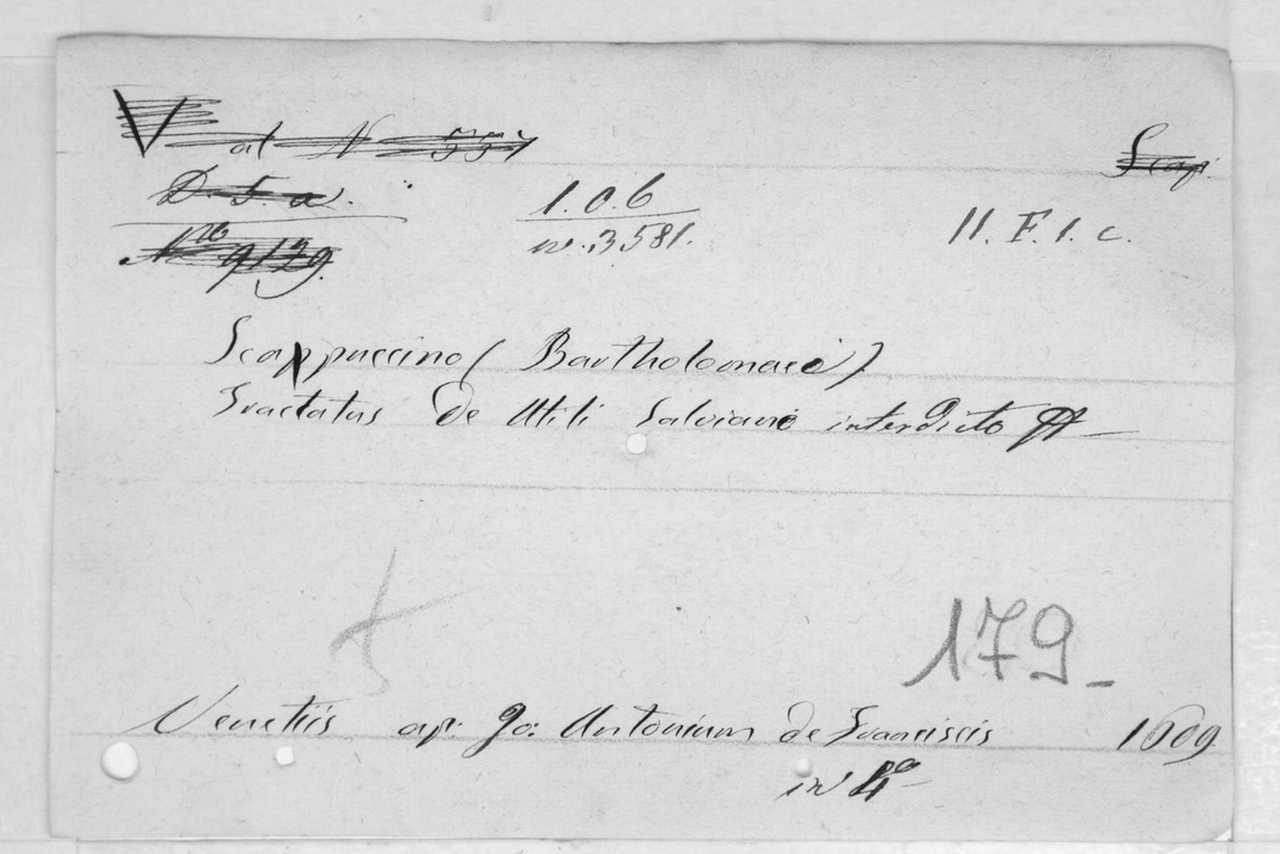 V at N 557
Scap.
D. 5 a.
1.0.6
n. 3581.
11. F. 1. c.
9129
Scappuccino (Bartholomaei)
Tractatus de Utili Salviani interdicto
179-
Venetiis ap: Jo: Antonium de Franciscis 1609
in 4º